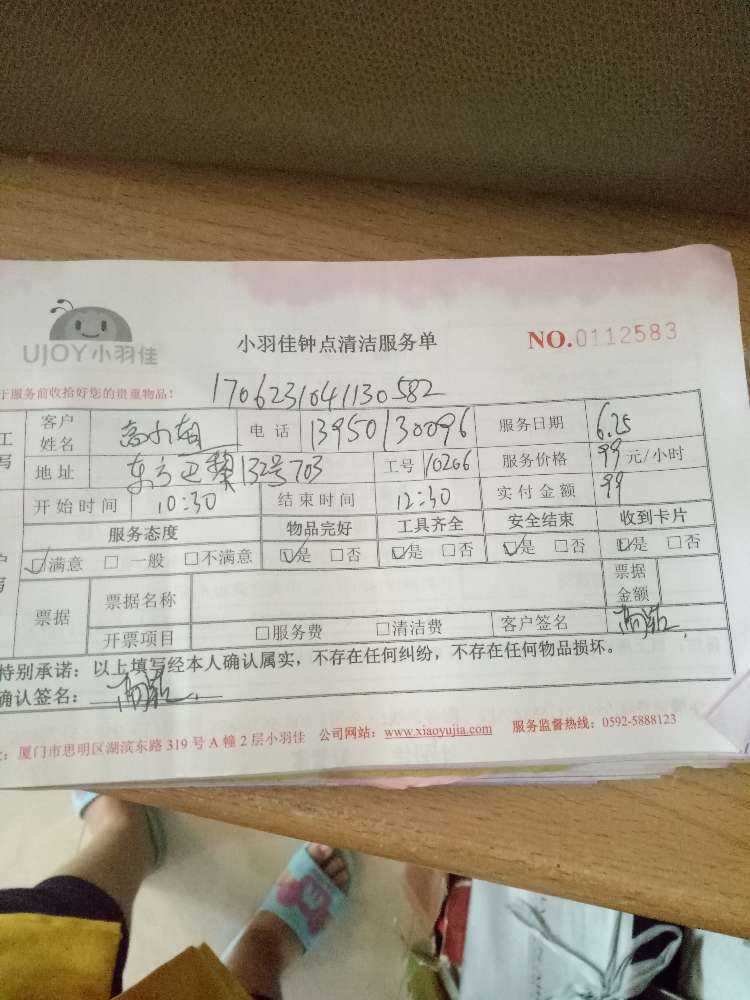 UJOY小羽佳
小羽佳钟点清洁服务单
NO.0112583
于服务前收拾好您的贵重物品!
1706231041130582
客户姓名 电话 13950130096 服务日期 6.25
地址 东方巴黎132号703 工号 10206 服务价格 99 元/小时
开始时间 10:30 结束时间 12:30 实付金额 99
服务态度 物品完好 工具齐全 安全结束 收到卡片
☑满意 □一般 □不满意 ☑是 □否 ☑是 □否 ☑是 □否 ☑是 □否
票据 票据名称 票据金额
开票项目 □服务费 □清洁费 客户签名
特别承诺:以上填写经本人确认属实,不存在任何纠纷,不存在任何物品损坏。
确认签名:
厦门市思明区湖滨东路319号A幢2层小羽佳 公司网站:www.xiaoyujia.com 服务监督热线:0592-5888123